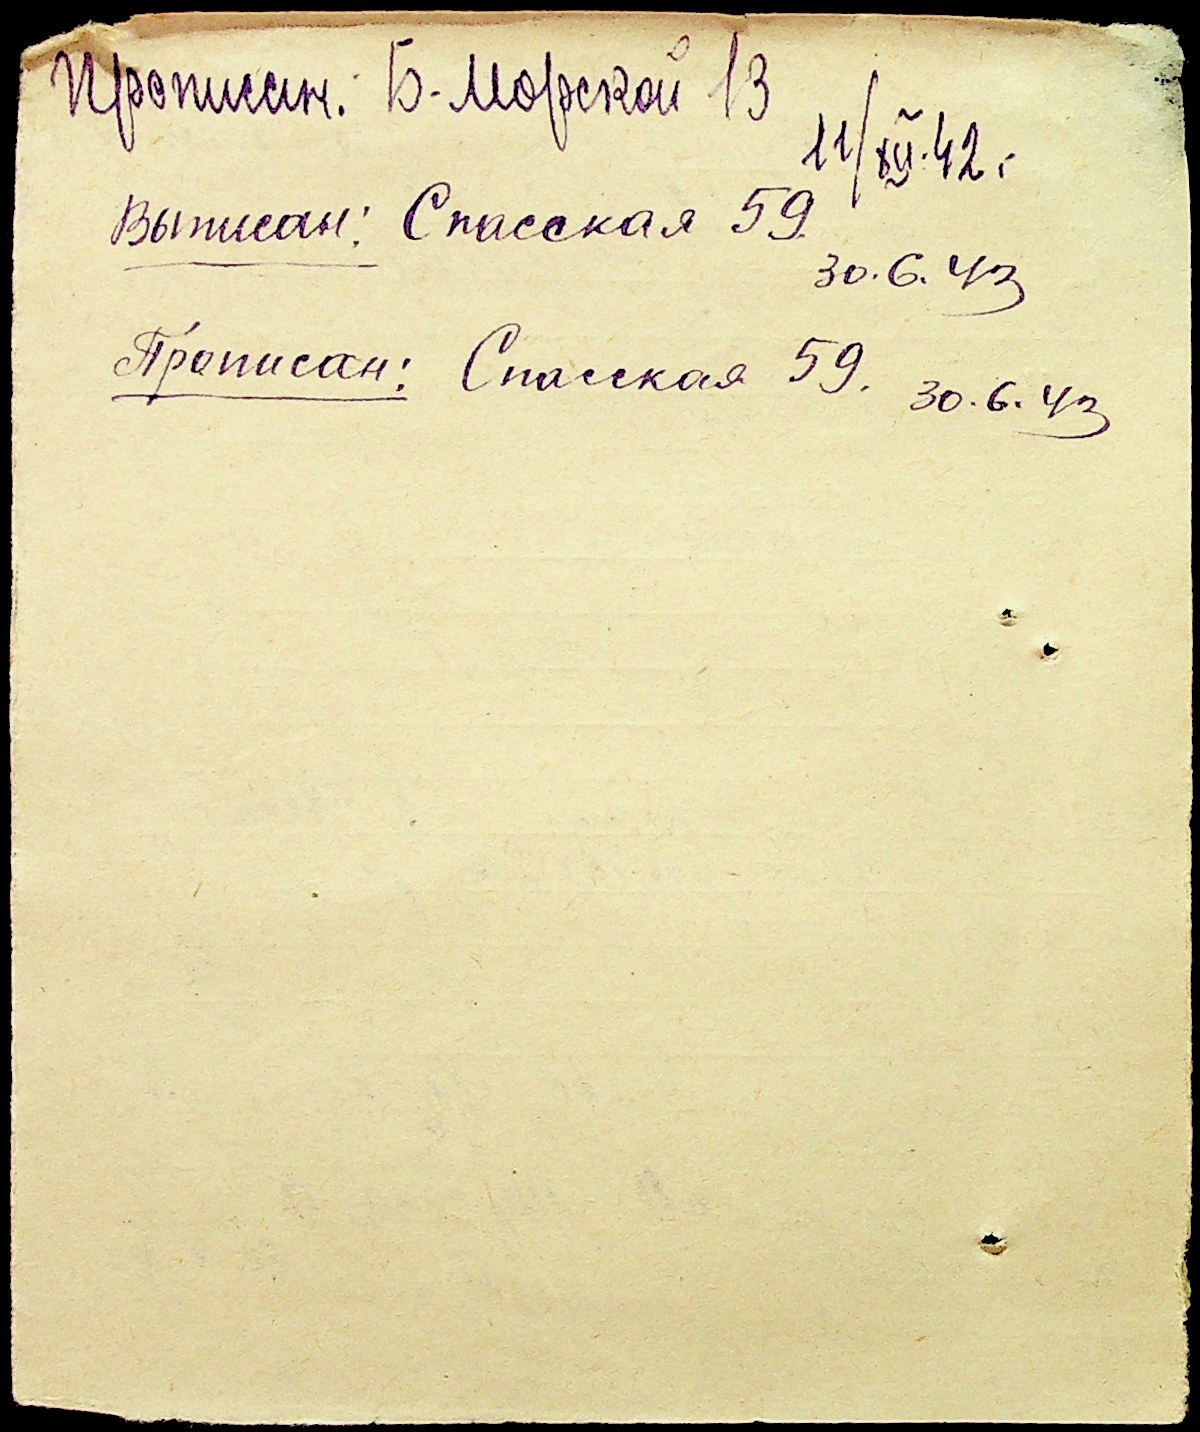 Прописан: Б-Морской 13
11/XII.42 г.
Выписан: Спасская 59.
30.6.43
Прописан: Спасская 59. 30.6.43